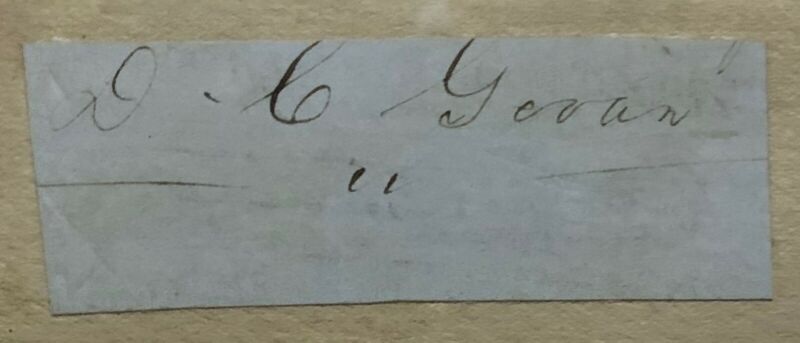 D. C Govan
"